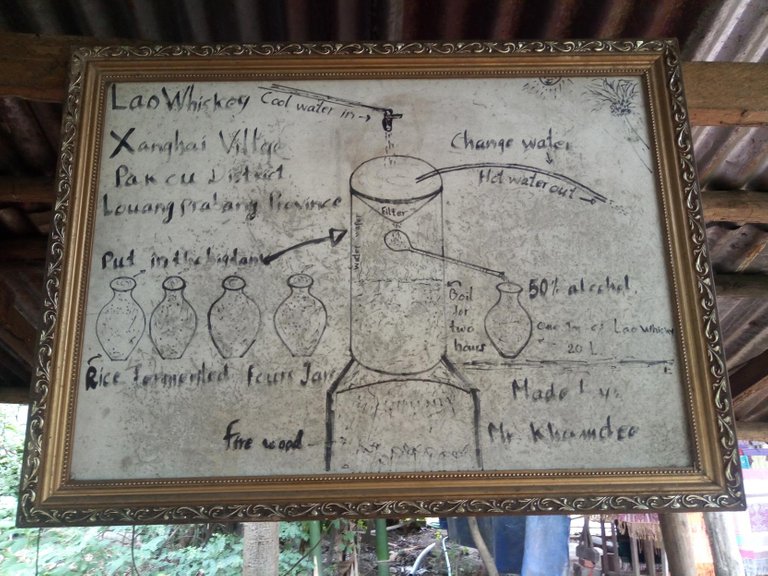 Lao Whiskey
Xanghai Village
Pak cu District
Louang prabang Province
Cool water in
Change water
Hot water out
Filter
water water
Put in the big tank
50% alcohol.
Boil for two hours
one Jar of Lao Whisky
20 L.
Rice fermented fours Jars
Made by:
Mr. Khamdee
fire wood